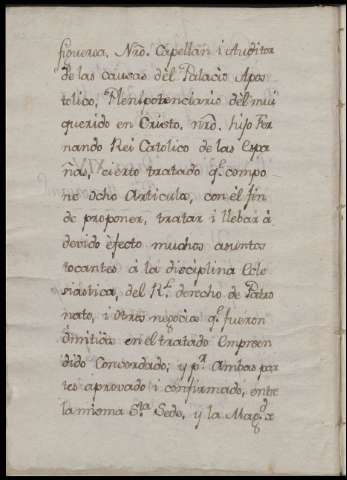 figueroa, Nrõ. Capellan i Auditor
de las causas dèl Palacio Apos
tolico, Plenipotenciario dèl mui
querido en Cristo, nrõ. hijo Fer
nando Rei Catolico de las Espa
ñas, cierto tratado q.e compo
ne ocho Articulos, con èl fin
de proponer, tratar i llebar à
devido èfecto muchos asuntos
tocantes à la disciplina Ecle
siastica, del R.l derecho de Patro
nato, i otros negocios q.e fueron
òmitidos en el tratado Empreen
dido Concordado; y p.r Ambas par
tes aprovado i confirmado, entre
la misma S.ta Sede, y la Mag.d